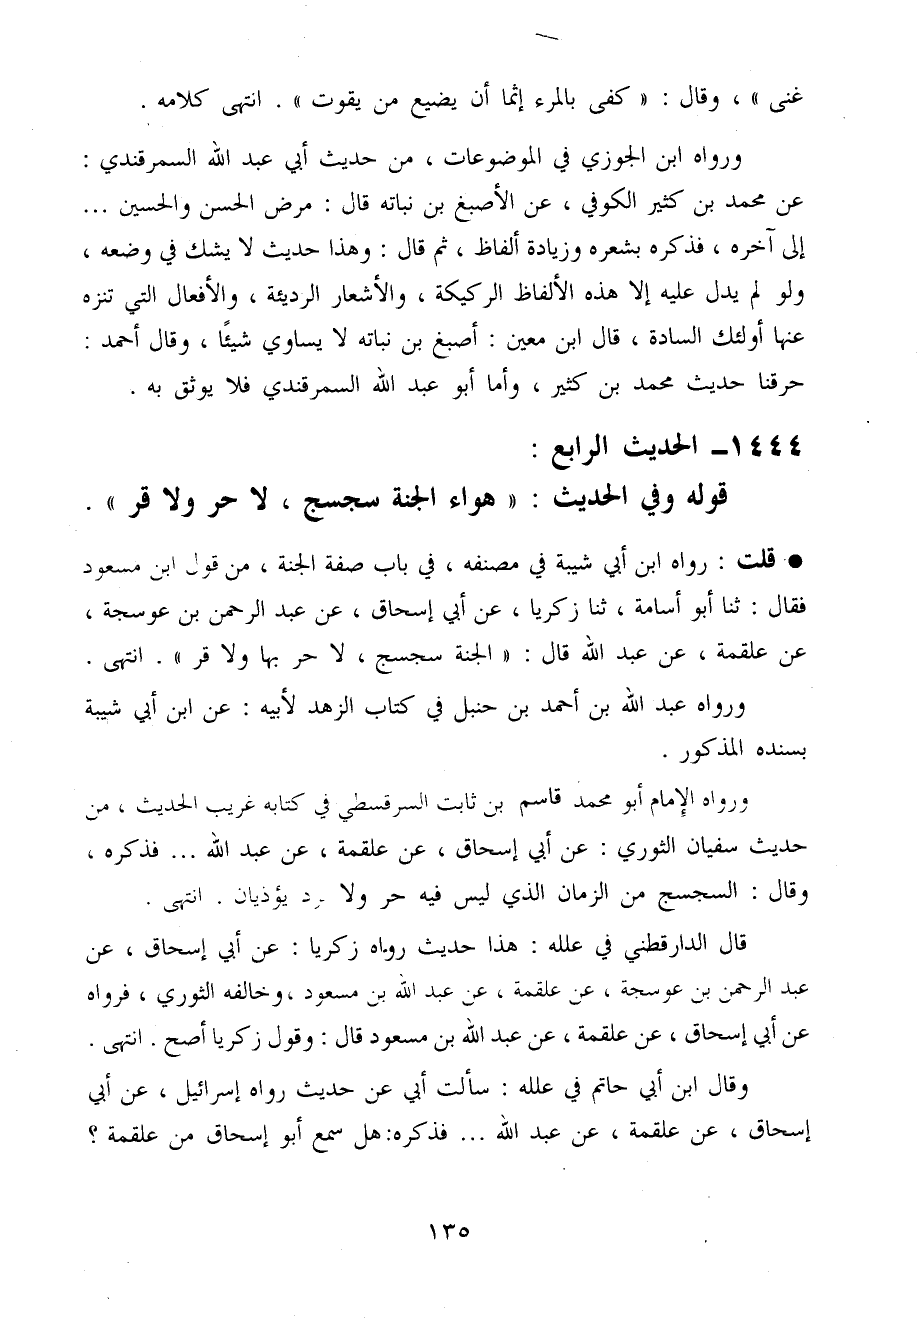 غنى » ، وقال : « كفى بالمرء إثمًا أن يضيع من يقوت » . انتهى كلامه .
ورواه ابن الجوزي في الموضوعات ، من حديث أبي عبد الله السمرقندي :
عن محمد بن كثير الكوفي ، عن الأصبغ بن نباته قال : مرض الحسن والحسين ...
إلى آخره ، فذكره بشعره وزيادة ألفاظ ، ثم قال : وهذا حديث لا يشك في وضعه ،
ولو لم يدل عليه إلا هذه الألفاظ الركيكة ، والأشعار الرديئة ، والأفعال التي تنزه
عنها أولئك السادة ، قال ابن معين : أصبغ بن نباته لا يساوي شيئًا ، وقال أحمد :
حرقنا حديث محمد بن كثير ، وأما أبو عبد الله السمرقندي فلا يوثق به .
١٤٤٤ـ الحديث الرابع :
قوله وفي الحديث : « هواء الجنة سجسج ، لا حر ولا قر » .
● قلت : رواه ابن أبي شيبة في مصنفه ، في باب صفة الجنة ، من قول ابن مسعود
فقال : ثنا أبو أسامة ، ثنا زكريا ، عن أبي إسحاق ، عن عبد الرحمن بن عوسجة ،
عن علقمة ، عن عبد الله قال : « الجنة سجسج ، لا حر بها ولا قر » . انتهى .
ورواه عبد الله بن أحمد بن حنبل في كتاب الزهد لأبيه : عن ابن أبي شيبة
بسنده المذكور .
ورواه الإمام أبو محمد قاسم بن ثابت السرقسطي في كتابه غريب الحديث ، من
حديث سفيان الثوري : عن أبي إسحاق ، عن علقمة ، عن عبد الله ... فذكره ،
وقال : السجسج من الزمان الذي ليس فيه حر ولا برد يؤذيان . انتهى .
قال الدارقطني في علله : هذا حديث رواه زكريا : عن أبي إسحاق ، عن
عبد الرحمن بن عوسجة ، عن علقمة ، عن عبد الله بن مسعود ، وخالفه الثوري ، فرواه
عن أبي إسحاق ، عن علقمة ، عن عبد الله بن مسعود قال : وقول زكريا أصح . انتهى .
وقال ابن أبي حاتم في علله : سألت أبي عن حديث رواه إسرائيل ، عن أبي
إسحاق ، عن علقمة ، عن عبد الله ... فذكره: هل سمع أبو إسحاق من علقمة ؟
١٣٥